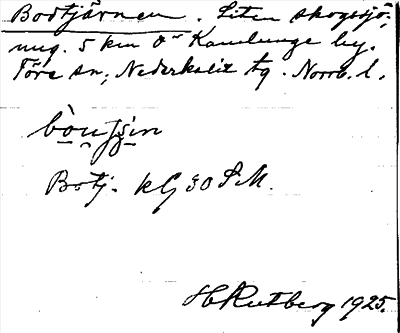 Bodtjärnen. Liten skogssjö,
ung. 5 km Ö om Kamlunge by.
Töre sn, Nederkalix tg. Norrb. l.
Botj. kG 30 S.M.
H Rutberg 1925.